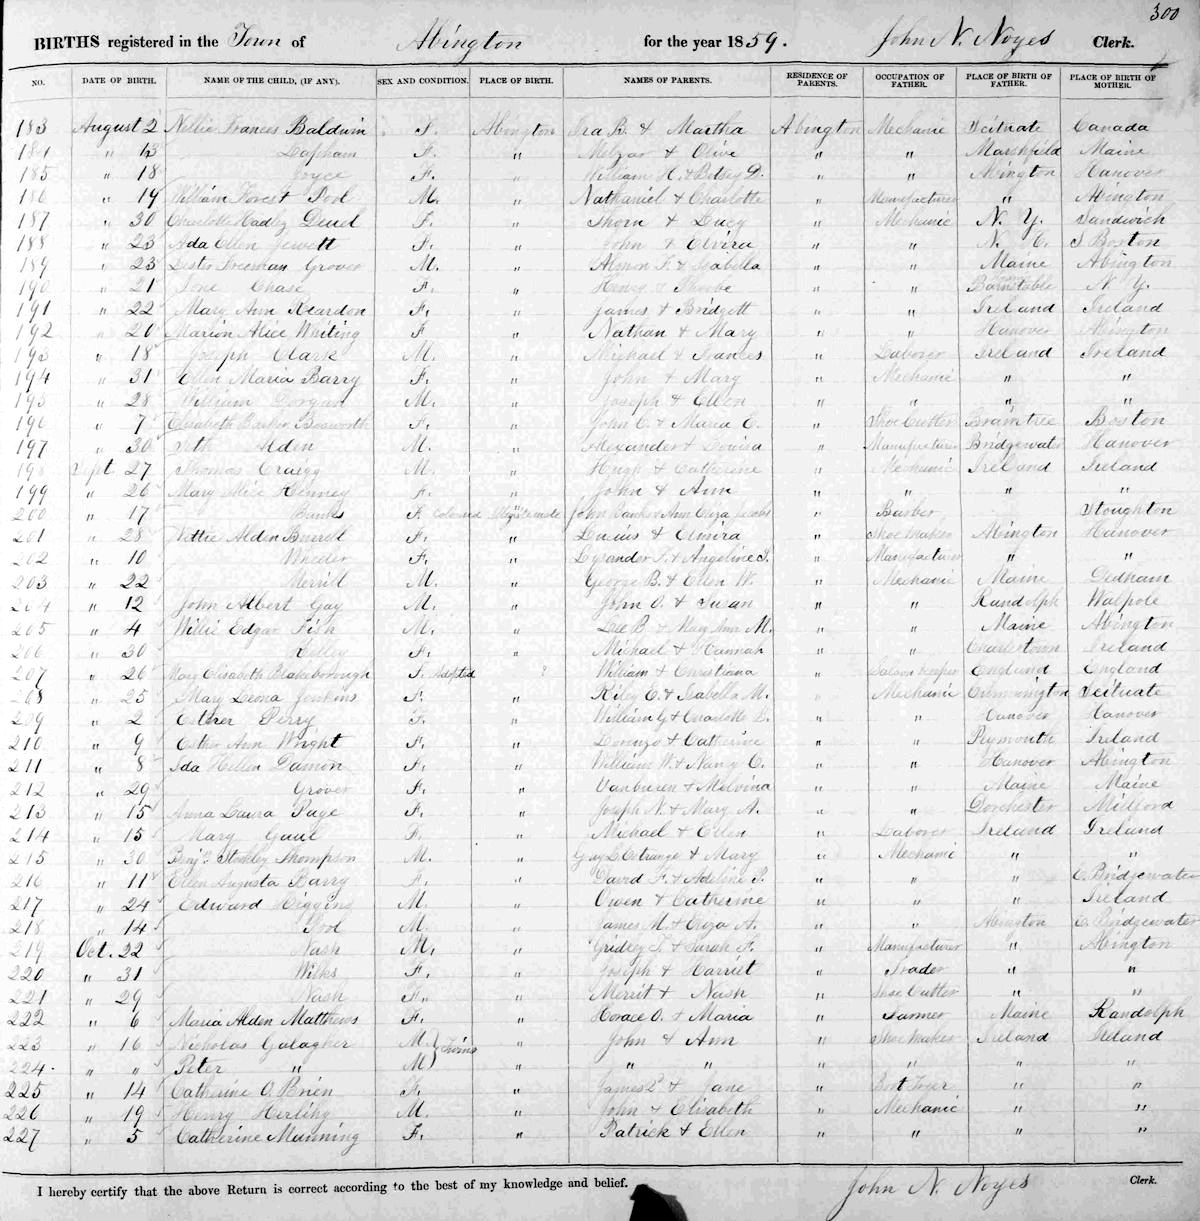 300
BIRTHS registered in the Town of Abington for the year 1859. John N. Noyes Clerk.
NO. DATE OF BIRTH. NAME OF THE CHILD, (IF ANY). SEX AND CONDITION. PLACE OF BIRTH. NAMES OF PARENTS. RESIDENCE OF PARENTS. OCCUPATION OF FATHER. PLACE OF BIRTH OF FATHER. PLACE OF BIRTH OF MOTHER.
183 August 2 Nellie Frances Baldwin F. Abington Ira B. & Martha Abington Mechanic Scituate Canada
184 " 13 Lapham F. " Melzar & Olive " " Marshfield Maine
185 " 18 Joyce F. " William H. & Betsey D. " " Abington Hanover
186 " 19 William Forest Pool M. " Nathaniel & Charlotte " Manufacturer " Abington
187 " 30 Charlotte Hadly Deuel F. " Thorn & Lucy " Mechanic N. Y. Sandwich
188 " 23 Ada Ellen Jewett F. " John & Elvira " " N. S Boston
189 " 25 Lester Freeman Grover M. " Almon F. & Isabella " " Maine Abington
190 " 21 Chase F. " Henry & Phoebe " " Barnstable N. Y.
191 " 22 Mary Ann Reardon F. " James & Bridgett " " Ireland Ireland
192 " 20 Marion Alice Whiting F " Nathan & Mary " " Hanover Abington
193 " 18 Joseph Clark M. " Michael & Frances " Laborer Ireland Ireland
194 " 31 Ellen Maria Barry F. " John & Mary " Mechanic " "
195 " 28 William Dorgan M. " Joseph & Ellen " " " "
196 " 7 Elisabeth Barker Bosworth F. " John C. & Maria E. " Shoe Cutter Braintree Boston
197 " 30 Seth Alden M. " Alexander & Louisa " Manufacturer Bridgewater Hanover
198 Sept. 27 Thomas Craigg M. " Hugh & Catherine " Mechanic Ireland Ireland
199 " 26 Mary Alice Kenney F. " John & Ann " " " "
200 " 17 Banks F. Colored Illegitimate John Banks & Ann Eliza Jacobs " Barber Stoughton
201 " 28 Nettie Alden Burrell F. " Lucius & Elmira " Shoe Maker Abington Hanover
202 " 10 Wheeler F. " Lysander F. & Angeline S. " Manufacturer " "
203 " 22 Merrill M. " George B. & Ellen W. " Mechanic Maine Dedham
204 " 12 John Albert Gay M. " John O. & Susan " " Randolph Walpole
205 " 4 Willie Edgar Fish M. " Lee B. & Mary Ann M. " " Maine Abington
206 " 30 Kelley F. " Michael & Hannah " " Charlestown Ireland
207 " 26 Mary Elisabeth Blakeborough F. Adopted ? William & Christiana " Saloon Keeper England England
208 " 25 Mary Leona Jenkins F. " Riley C. & Isabella M. " Mechanic Cummington Scituate
209 " 2 Esther Perry F. " William G & Charlotte B. " " Hanover Hanover
210 " 9 Esther Ann Wright F. " Lorenzo & Catherine " " Plymouth Ireland
211 " 8 Ida Hellen Damon F. " William W. & Nancy C. " " Hanover Abington
212 " 29 Grover F. " Vanburen & Melvina " " Maine Maine
213 " 15 Anna Laura Page F. " Joseph N. & Mary A. " " Dorchester Milford
214 " 15 Mary F. " Michael & Ellen " Laborer Ireland Ireland
215 " 30 Benj. Stockley Thompson M. " Guy L Estrange & Mary " Mechanic " "
216 " 11 Ellen Augusta Barry F. " David F. & Adeline P. " " " E. Bridgewater
217 " 24 Edward Higgins M. " Owen & Catherine " " Ireland
218 " 14 Pool M. " James M. & Eliza A. " " Abington E. Bridgewater
219 Oct. 22 Nash M. " Gridley T. & Sarah F. " Manufacturer " Abington
220 " 31 Wilks F. " Joseph & Harriet " Trader " "
221 " 29 Nash F. " Merrit & Nash " Shoe Cutter " "
222 " 6 Maria Alden Matthews F. " Horace O. & Maria " Farmer Maine Randolph
223 " 16 Nicholas Galagher M. } Twins " John & Ann " Shoe Maker Ireland Ireland
224 " " Peter " M } " " " " " " "
225 " 14 Catherine O. Brien F. " James & Jane " Boot Treer " "
226 " 19 Henry Herlihy M. " John & Elisabeth " Mechanic " "
227 " 5 Catherine Munning F. " Patrick & Ellen " " " "
I hereby certify that the above Return is correct according to the best of my knowledge and belief. John N. Noyes Clerk.